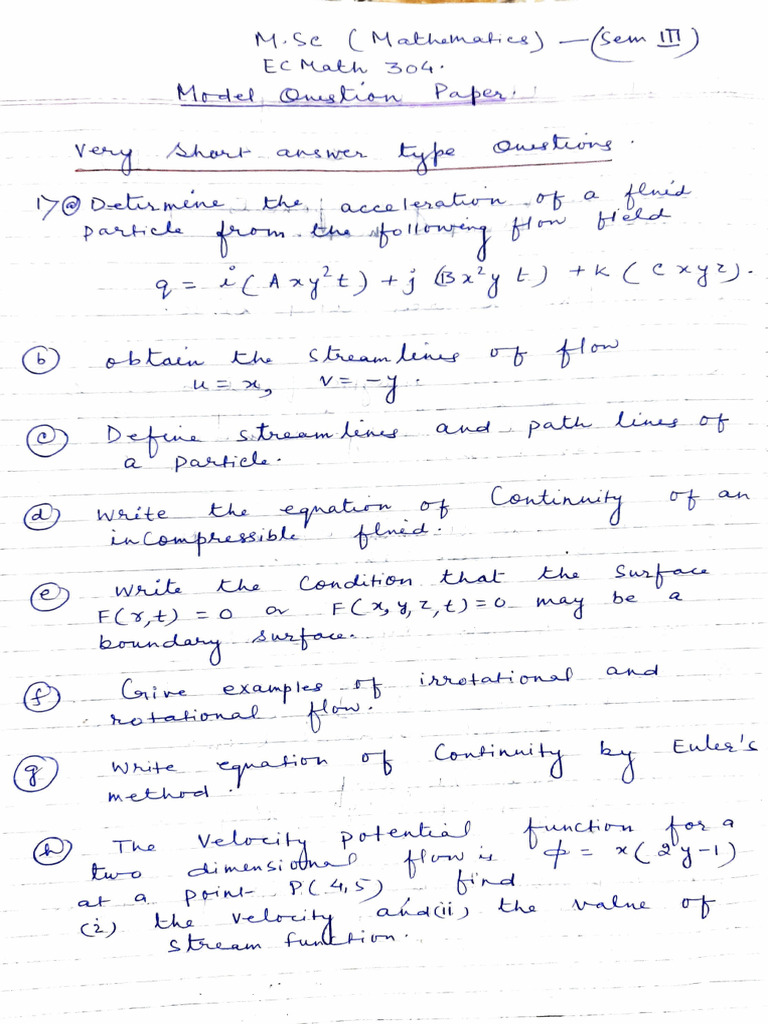 M.Sc (Mathematics) — (Sem III)
EC Math 304.
Model Question Paper.
Very short answer type Questions.
1) (a) Determine the acceleration of a fluid
particle from the following flow field
q = i(Axy²t) + j(Bx²yt) + k(Cxyz).
(b) obtain the streamlines of flow
u = x, v = -y.
(c) Define streamlines and path lines of
a particle.
(d) Write the equation of Continuity of an
incompressible fluid.
(e) Write the Condition that the surface
F(r,t) = 0 or F(x,y,z,t) = 0 may be a
boundary surface.
(f) Give examples of irrotational and
rotational flow.
(g) Write equation of Continuity by Euler's
method.
(h) The Velocity potential function for a
two dimensional flow is φ = x(2y-1)
at a point P(4,5) find
(i) the velocity and (ii) the value of
stream function.